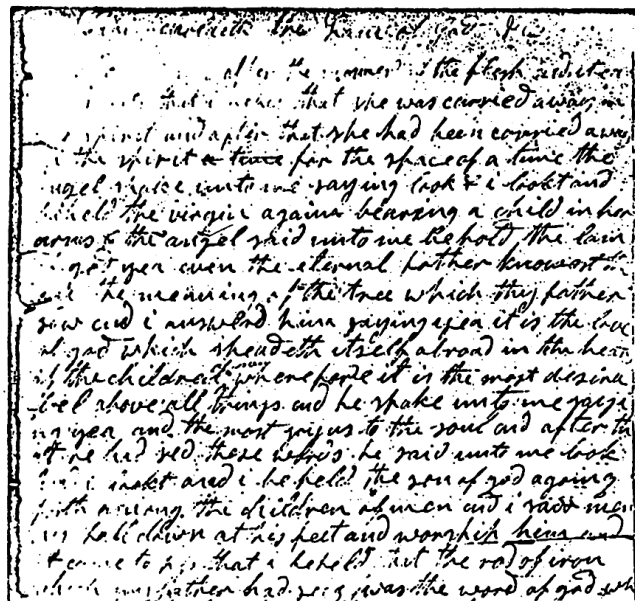 the
after the manner of the flesh
that she was carried away in
spirit and after that she had been carried awa
the spirit for the space of a time the
angel spake unto me saying look & i lookt and
beheld the virgin again bearing a child in her
arms & the angel said unto me behold the lam
god yea even the eternal father knowest
the meaning of the tree which thy father
saw and i answerd him saying yea it is the love
of god which sheadeth itself abroad in the hear
of the children wherefore it is the most desira
above all things and he spake unto me
yea and the most joyus to the soul and after
he had sed these words he said unto me look
i lookt and i beheld the son of god agoing
forth among the children of men and i saw men
fall down at his feet and worship him and
it came to pass that i beheld that the rod of iron
which my father had was the word of god